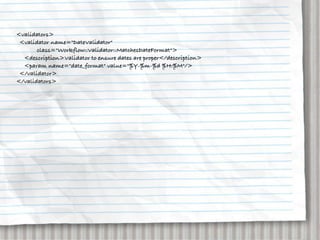 <validators>
<validator name="DateValidator"
class="Workflow::Validator::MatchesDateFormat">
<description>Validator to ensure dates are proper</description>
<param name="date_format" value="%Y-%m-%d %H:%M"/>
</validator>
</validators>